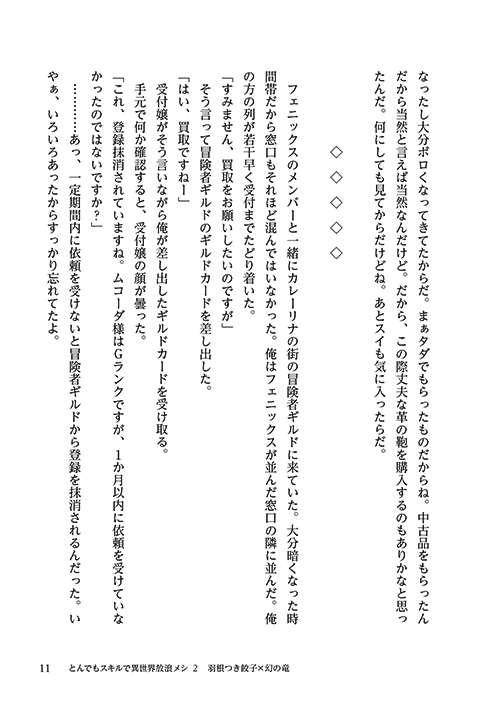 なったし大分ボロくなってきてたからだ。まぁタダでもらったものだからね。中古品をもらったん
だから当然と言えば当然なんだけど。だから、この際丈夫な革の鞄を購入するのもありかなと思っ
たんだ。何にしても見てからだけどね。あとスイも気に入ったらだ。
◇ ◇ ◇ ◇ ◇
フェニックスのメンバーと一緒にカレーリナの街の冒険者ギルドに来ていた。大分暗くなった時
間帯だから窓口もそれほど混んではいなかった。俺はフェニックスが並んだ窓口の隣に並んだ。俺
の方の列が若干早く受付までたどり着いた。
「すみません、買取をお願いしたいのですが」
そう言って冒険者ギルドのギルドカードを差し出した。
「はい、買取ですねー」
受付嬢がそう言いながら俺が差し出したギルドカードを受け取る。
手元で何か確認すると、受付嬢の顔が曇った。
「これ、登録抹消されていますね。ムコーダ様はGランクですが、1か月以内に依頼を受けていな
かったのではないですか？」
…………あっ、一定期間内に依頼を受けないと冒険者ギルドから登録を抹消されるんだった。い
やぁ、いろいろあったからすっかり忘れてたよ。
11 とんでもスキルで異世界放浪メシ 2 羽根つき餃子×幻の竜